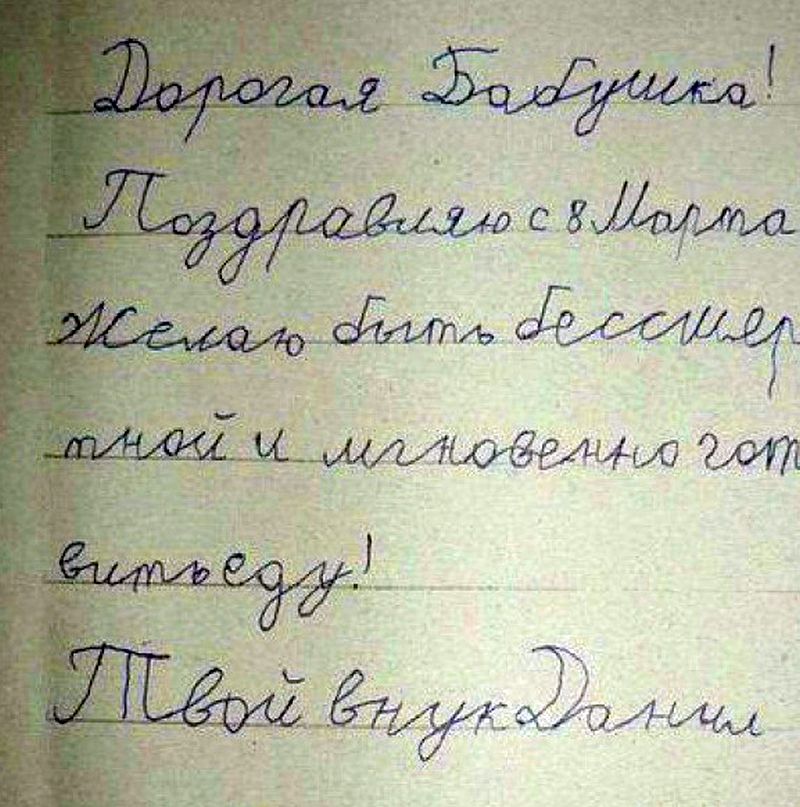 Дорогая Бабушка!
Поздравляю с 8 Марта
Желаю быть бессмер
тной и мгновенно гот
вить еду!
Твой внук Данил